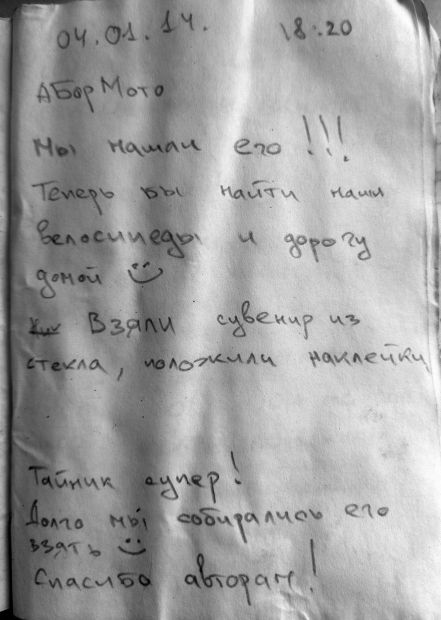 04.01.14. 18:20
АБорМото
Мы нашли его !!!
Теперь бы найти наши
велосипеды и дорогу
домой
Взяли сувенир из
стекла, положили наклейки
Тайник супер!
Долго мы собирались его
взять
Спасибо авторам!